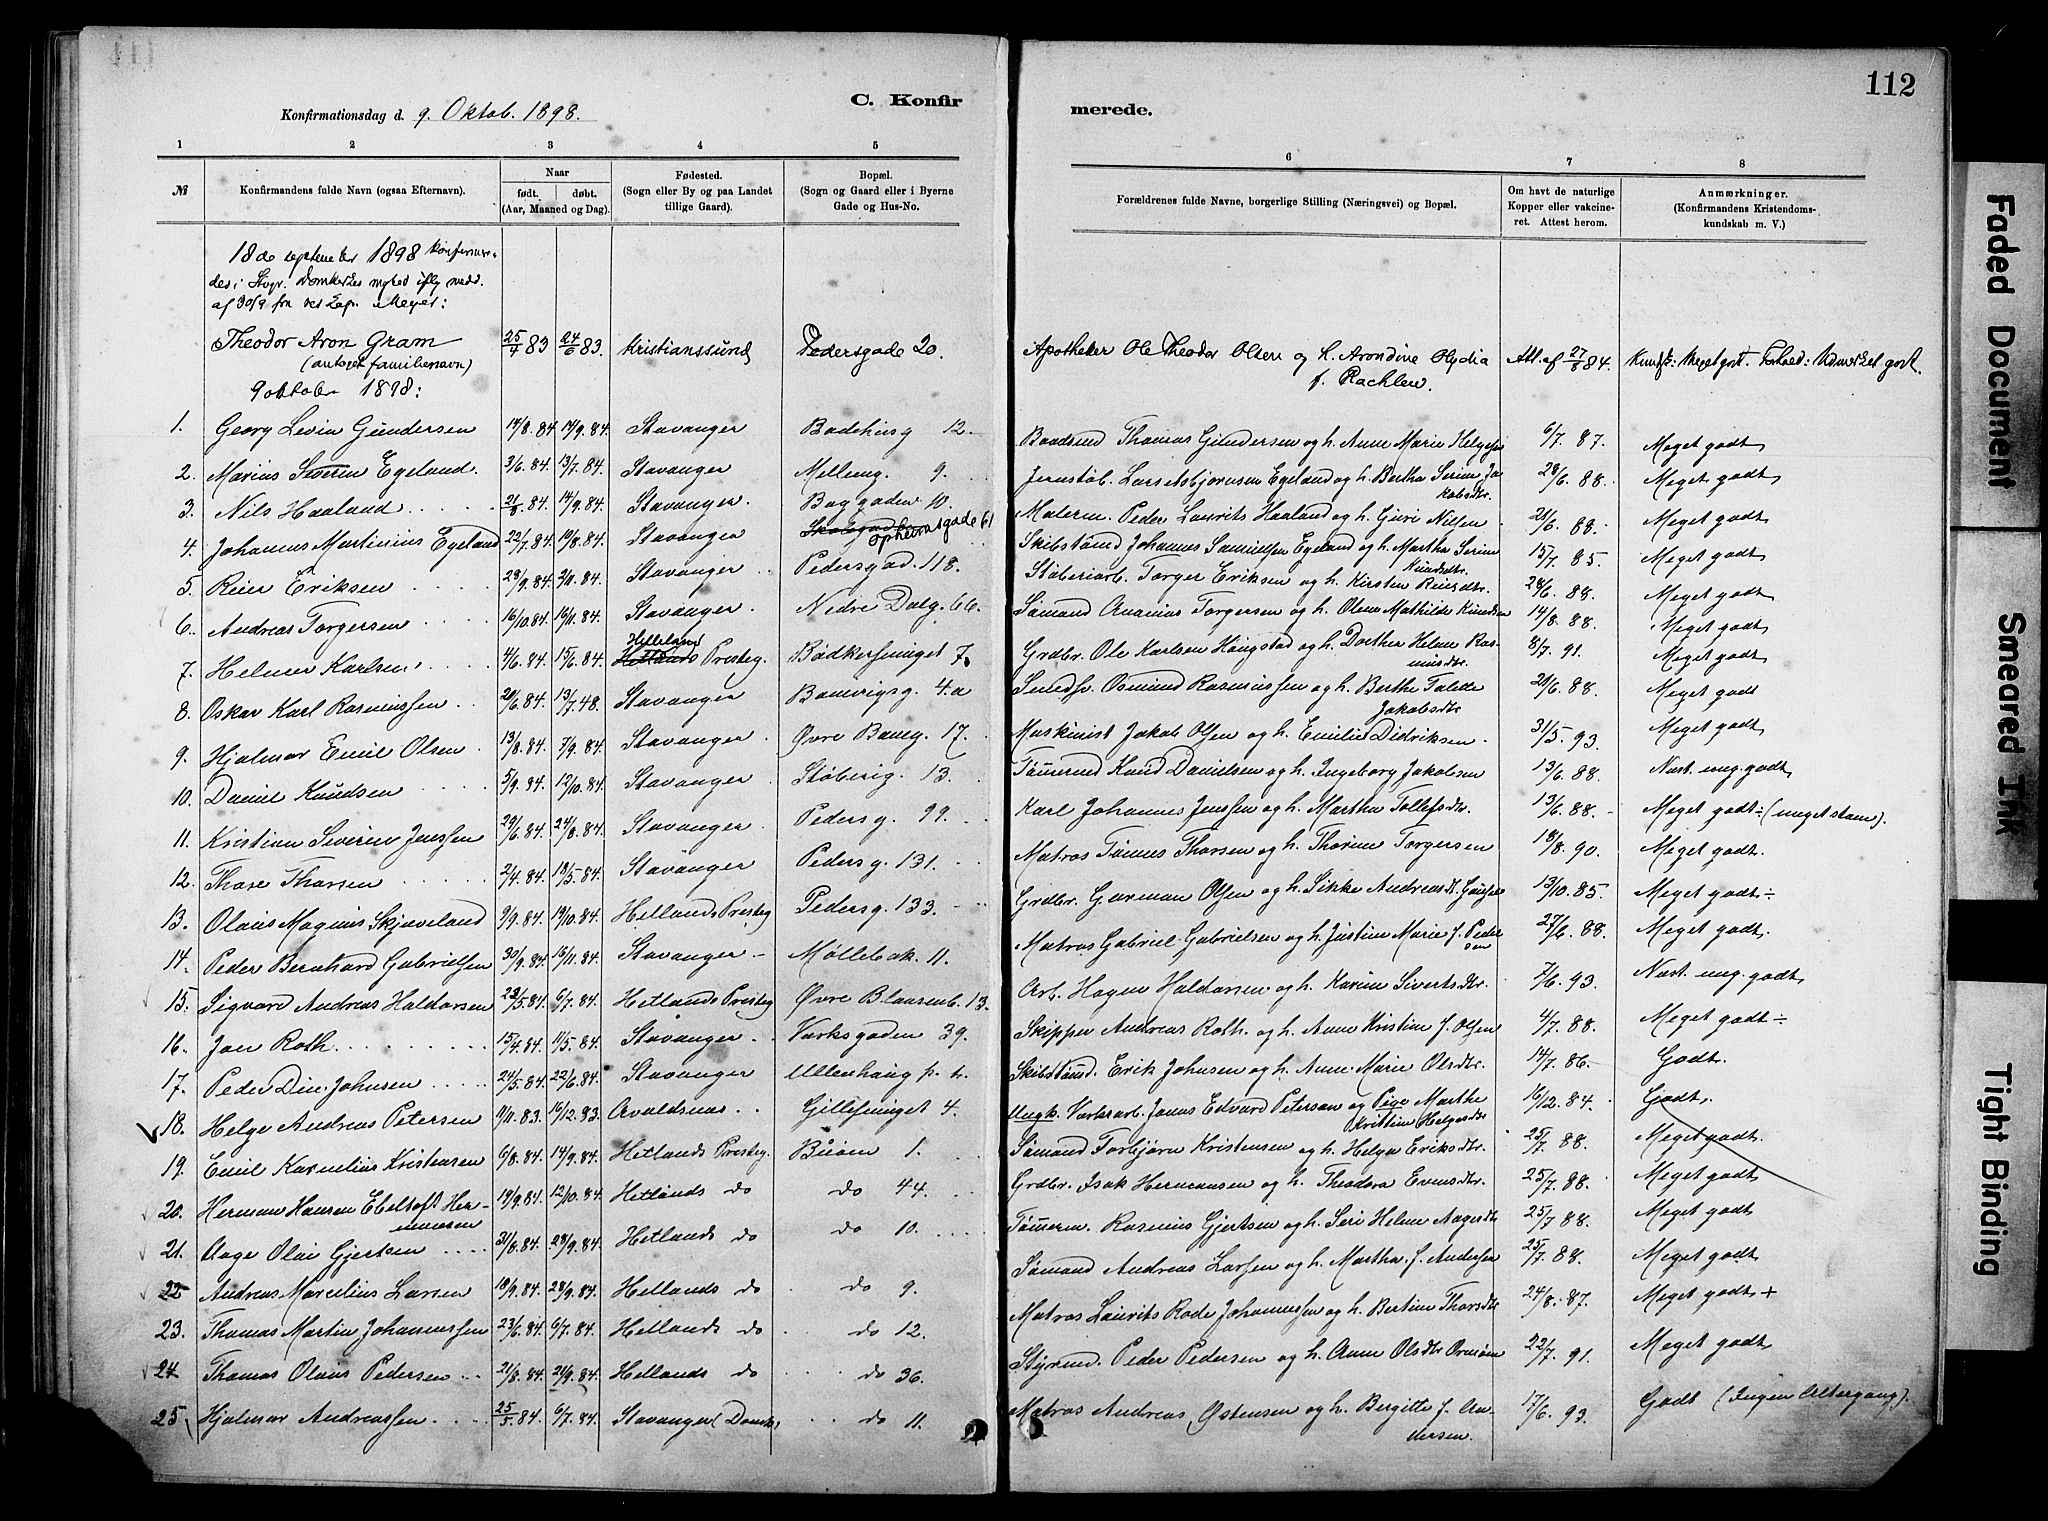 112
C. Konfirmerede.
Konfirmationsdag d. 9. Oktob. 1898.
1 2 3 4 5 6 7 8
№ Konfirmandens fulde Navn (ogsaa Efternavn). Naar født. døbt. (Aar, Maaned og Dag). Fødested. (Sogn eller By og paa Landet tillige Gaard). Bopæl. (Sogn og Gaard eller i Byerne Gade og Hus-No. Forældrenes fulde Navne, borgerlige Stilling (Næringsvei) og Bopæl. Om havt de naturlige Kopper eller vakcineret. Attest herom. Anmærkninger. (Konfirmandens Kristendomskundskab m. V.)
18de september 1898 konfirmer-
des i Stvgr. Domkirkes myhed iflg medd.
af 30/9 fra res Kap. Meyer:
Theodor Aron Gram 25/4 83 24/6 83. Kristianssund Pedersgade 20. Apotheker Ole Theodor Olsen og h. Arondine Olydia Att. af 27/8 84. Kundsk: Meget godt. Forhold: Udmerket godt.
(antaget familienavn) f. Rachlew.
9 oktober 1898:
1. Georg Levin Gundersen 14/8. 84 14/9. 84. Stavanger Badehusg 12. Baadsmd Thomas Gundersen og h. Anne Marie Helgesen 6/7. 87. Meget godt
2. Marius Severin Egeland. 3/6. 84. 13/7. 84. Stavanger Melleng. 9. Jernstøb. Lars Asbjørnsen Egeland og h. Bertha Serine Ja- 28/6. 88. Meget godt
kobsdtr.
3. Nils Haaland 21/8. 84. 14/9. 84. Stavanger. Baggaden 10. Malerm. Peder Laurits Haaland og h. Guri Nilsen 21/6. 88. Meget godt
4. Johannes Martinius Egeland 22/7. 84. 10/8. 84. Stavanger Opheimsgade 61 Skibstømd Johannes Samuelsen Egeland og h. Martha Serine 15/7. 85. Meget godt
Knudsdtr.
5. Reier Eriksen 28/9. 84. 2/11. 84. Stavanger Pedersgad. 118. Støberiarb. Torger Eriksen og h. Kirsten Reiersdtr. 28/6. 88. Meget godt
6. Andreas Torgersen 16/10. 84. 16/11. 84. Stavanger Nedre Dalg. 66. Sømand Ananias Torgersen og h. Olene Mathilde Knudsen 14/8. 88. Meget godt
7. Helmer Karlsen 4/6. 84. 15/6. 84. Helleland Presteg. Bødkersmuget 7. Grdbr. Ole Karlsen Haugstad og h. Dorthea Helene Ras- 8/7. 91. Meget godt
musdtr.
8. Oskar Karl Rasmussen 20/6. 84. 13/7. 48. Stavanger Banevigsg. 4.a Smedsv. Osmund Rasmussen og h. Berthe Talette 21/6. 88. Meget godt
Jakobsdtr
9. Hjalmar Emil Olsen 13/8. 84. 7/9. 84. Stavanger Øvre Baneg. 17. Maskinist Jakob Olsen og h. Emilie Didriksen 31/5. 93. Meget godt
10. Daniel Knudsen 5/9. 84. 12/10. 84. Stavanger Støberig. 13. Tømmermd Knud Danielsen og h. Ingeborg Jakobsen 13/6. 88. Næst. meg. godt
11. Kristian Severin Jenssen 29/6. 84. 24/8. 84. Stavanger Pedersg. 99. Karl Johannes Jenssen og h. Martha Tollefsdtr. 13/6. 88. Meget godt ÷ (meget stam).
12. Those Thorsen 2/4. 84. 18/5. 84. Stavanger Pedersg. 131. Matros Tønnes Thorsen og h. Thorine Torgersen 18/8. 90. Meget godt.
13. Olaus Magnus Skjæveland 9/9. 84. 19/10. 84. Hetlands Presteg Pedersg. 133. Grdbr. Garman Olsen og h. Sikke Andreasdtr. 13/10. 85. Meget godt ÷
14. Peder Bernhard Gabrielsen 30/9. 84. 16/11. 84. Stavanger Møllebak. 11. Matros Gabriel Gabrielsen og h. Justine Marie f. Peder 27/6. 88. Meget godt.
sen
15. Sigvard Andreas Haldorsen 23/5. 84. 6/7. 84. Hetlands Presteg Øvre Blaasenb. 13. Arb. Hagen Haldorsen og h. Karine Sivertsdtr. 7/6. 93. Næst. meg. godt
16. Jan Roth 15/4. 84. 11/5. 84. Stavanger Værksgaden 39. Skipper Andreas Roth. og h. Anne Kristine f. Olsen 4/7. 88. Meget godt ÷
17. Peder Din. Johnsen 24/5. 84. 22/6. 84. Stavanger Ullenhaug p. h. Skibstømd. Erik Johnsen og h. Anne Marie Olsdtr. 14/7. 86. Godt.
18. Helge Andreas Petersen 11/11. 83. 16/12. 83. Avaldsnæs Gillesmuget 4. Ungk. Værksarb. Jonas Edvard Peterson og Pige Marthe 16/12. 84. Godt.
Kristine Helgesdtr
19. Emil Kornelius Kristensen 6/8. 84. 14/9. 84. Hetlands Presteg. Buøen 1. Sømand Torbjørn Kristensen og h. Helga Eriksdtr. 25/7. 88. Meget godt.
20. Herman Hansen Ebeltoft Her- 19/9. 84. 12/10. 84. Hetlands do do 44. Grdbr. Isak Hermansen og h. Theodora Evensdtr. 25/7. 88. Meget godt
mansen
21. Aage Olai Gjertsen 31/8. 84. 28/9. 84. Hetlands do do 10. Tømmerm. Rasmus Gjertsen og h. Seri Helene Aagesdtr 25/7. 88. Meget godt
22 Andreas Marcelius Larsen 18/9. 84. 28/9. 84. Hetlands do do 9. Sømand Andreas Larsen og h. Martha f. Andersen 25/7. 88. Meget godt
23. Thomas Martin Johannessen 23/6. 84. 6/7. 84. Hetlands do do 12. Matros Laurits Rode Johannessen og h. Bertine Thorsdtr 24/8. 87. Meget godt +
24 Thomas Olaus Pedersen 21/8. 84. 21/9. 84. Hetlands do do 36. Styrmd. Peder Pedersen og h. Anne Olsdtr 22/7. 91. Meget godt
25. Hjalmar Andreassen 25/5. 84. 6/7. 84. Stavanger (Domk. do 11. Matros Andreas Østensen og h. Bergitte f. An- 17/6. 93. Godt (Ingen Altergang).
dersen.
Faded Document
Smeared Ink
Tight Binding